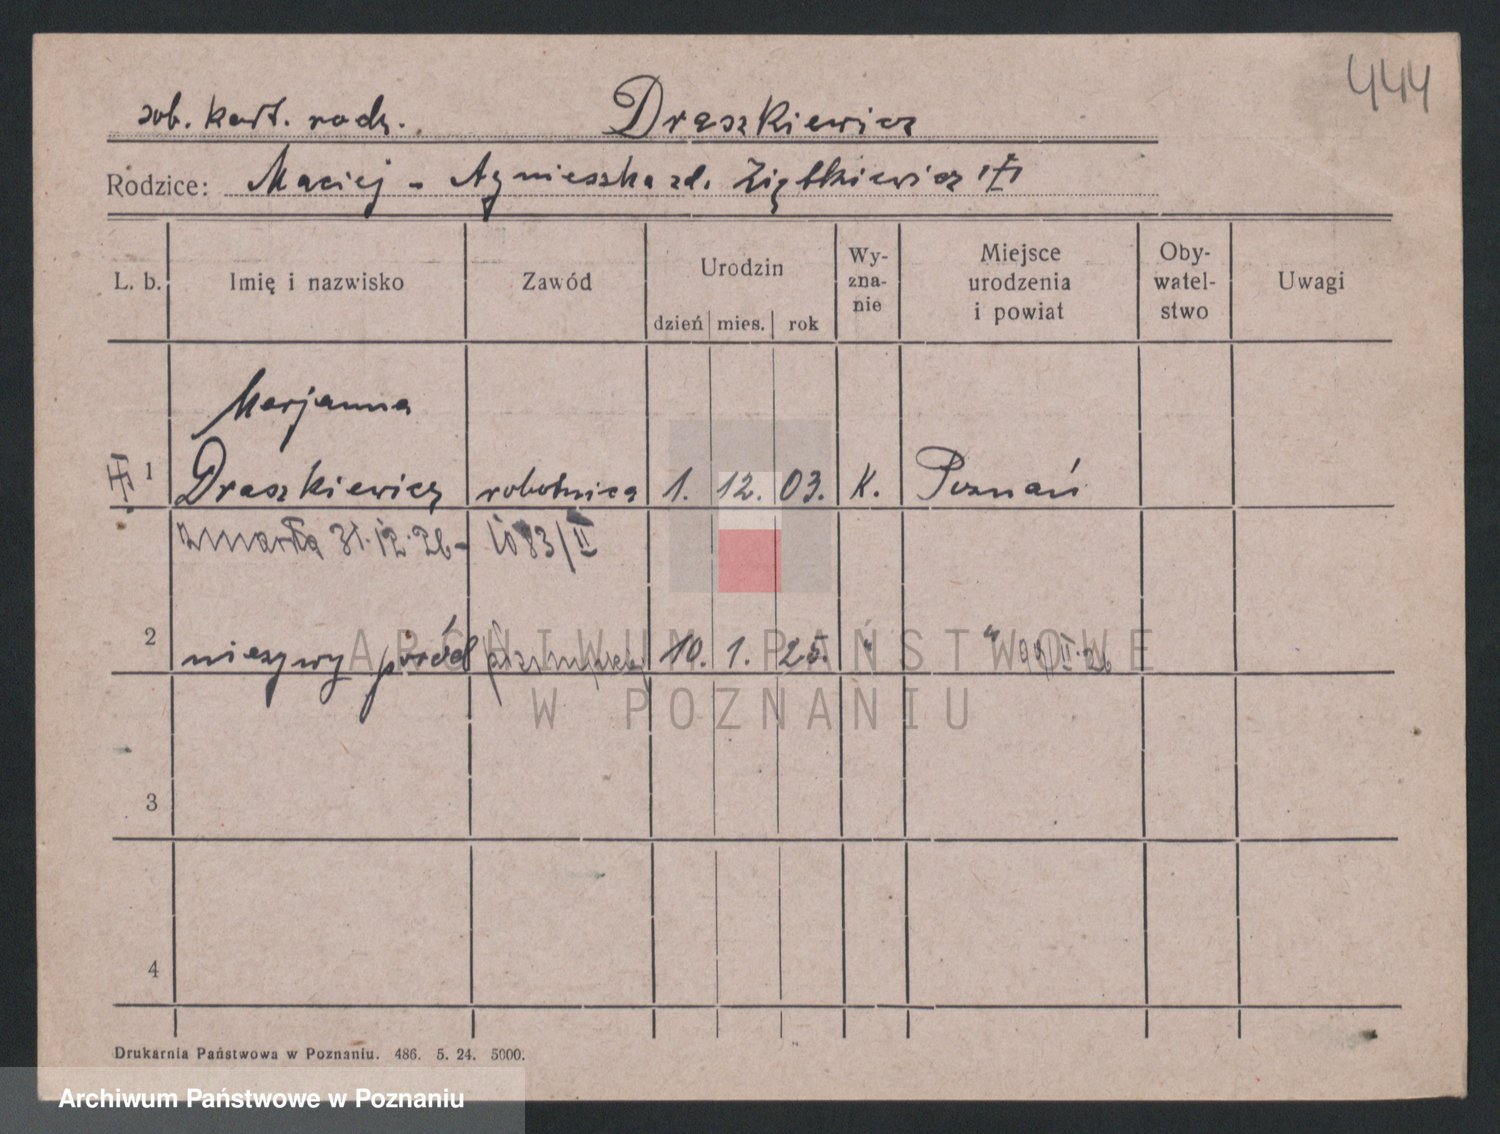 444
zob. kart. rodz. Draszkiewicz
Rodzice: Maciej - Agnieszka zd. Ziętkiewicz
L. b. Imię i nazwisko Zawód Urodzin dzień mies. rok Wy-zna-nie Miejsce urodzenia i powiat Oby-watel-stwo Uwagi
Marjanna
1 Draszkiewicz robotnica 1. 12. 03. k. Poznań
zmarła 31.12.26 - 1083/II
2 nieżywy poród 10. 1. 25. " "
ARCHIWUM PAŃSTWOWE
W POZNANIU
3
4
Drukarnia Państwowa w Poznaniu. 486. 5. 24. 5000.
Archiwum Państwowe w Poznaniu